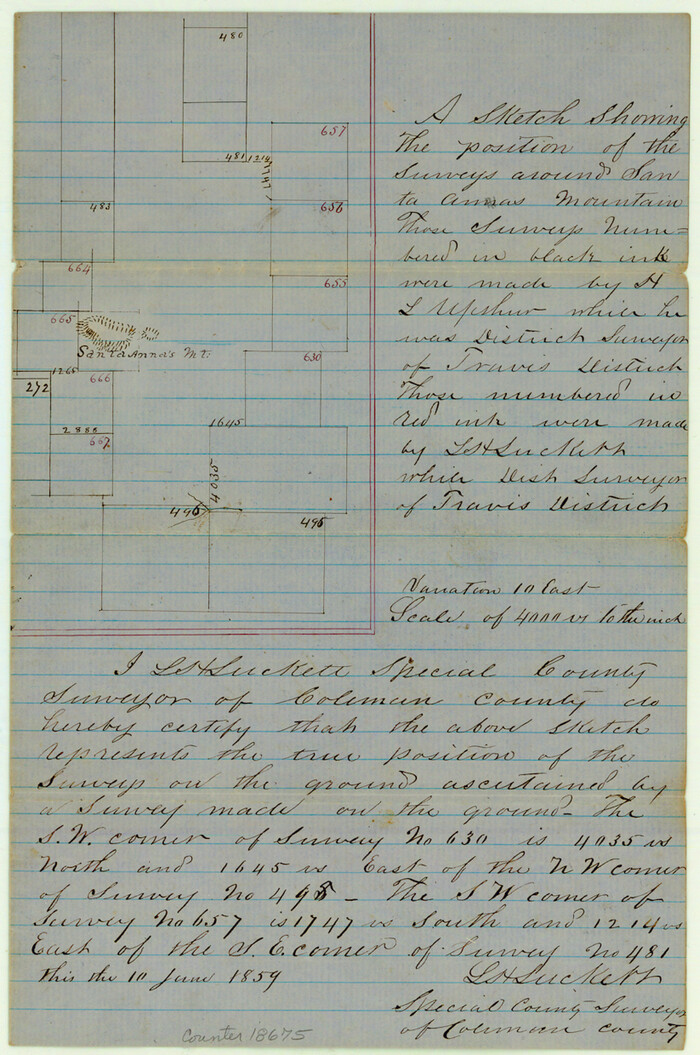 480
657
481 1214
1747
656
483
664
655
665
Santa Anna's Mt.
630
1265
272
666
1645
2888
667
4035
495
495
A Sketch Showing
the position of the
Surveys around San
ta Annas Mountain
Those Surveys Num=
bered in black ink
were made by H
L Upshur while he
was District Surveyor
of Travis District
Those numbered in
red ink were made
by L H Luckett
while Dist Surveyor
of Travis District
Variation 10 East
Scale of 4000 vs to the inch
I L H Luckett Special County
Surveyor of Coleman County do
hereby certify that the above Sketch
represents the true position of the
Surveys on the ground ascertained by
a Survey made on the ground- The
S.W. corner of Survey No 630 is 4035 vs
North and 1645 vs East of the N W corner
of Survey No 495 - The S W corner of
Survey No 657 is 1747 vs South and 1214 vs
East of the S.E. corner of Survey No 481
this the 10 June 1859
L H Luckett
Special County Surveyor
of Coleman County
Counter 18675